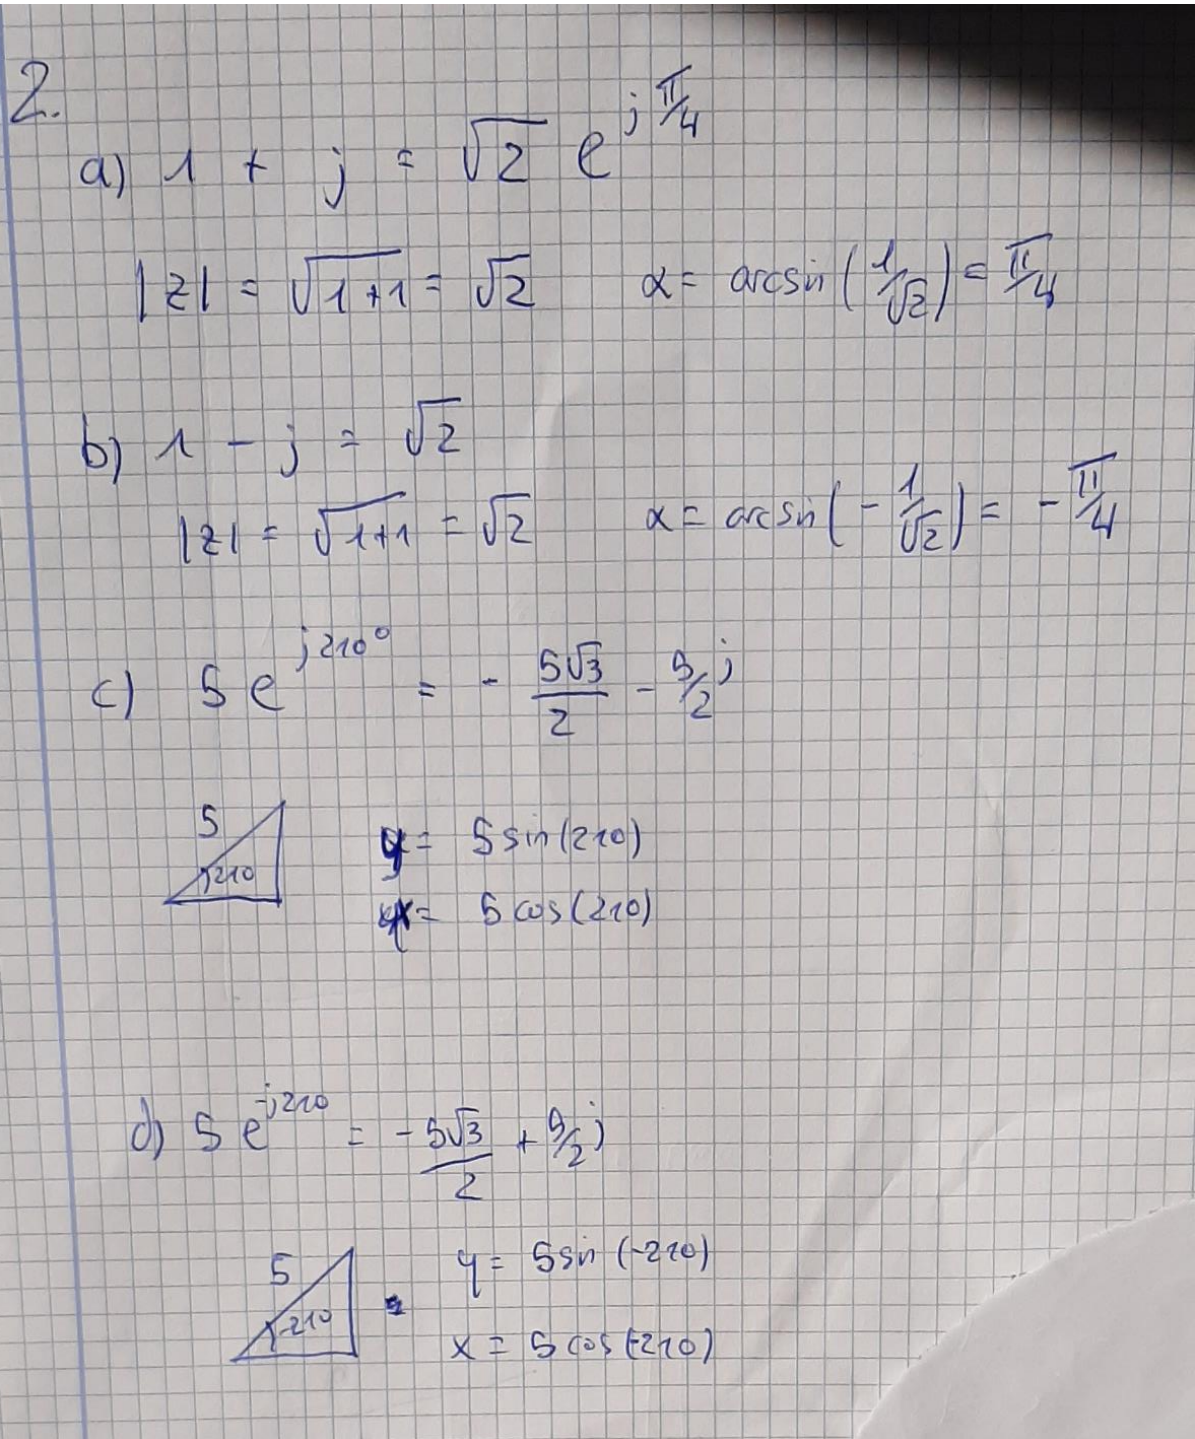 2.
a) 1 + j = √2 e^(j π/4)
|z| = √(1+1) = √2 α = arcsin(1/√2) = π/4
b) 1 - j = √2
|z| = √(1+1) = √2 α = arcsin(-1/√2) = -π/4
c) 5 e^(j210°) = - 5√3/2 - 5/2 j
5
210
y = 5 sin(210)
x = 5 cos(210)
d) 5 e^(-j210) = - 5√3/2 + 5/2 j
5
-210
y = 5 sin (-210)
x = 5 cos(-210)